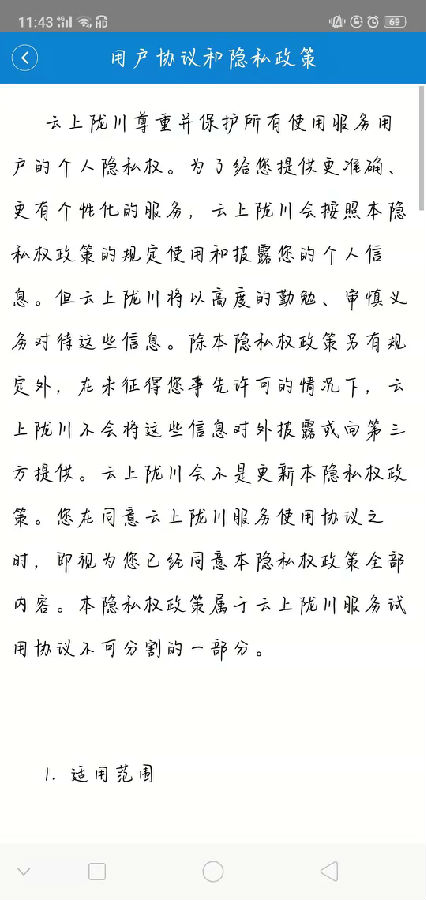 11:43 69
用户协议和隐私政策
云上陇川尊重并保护所有使用服务用
户的个人隐私权。为了给您提供更准确、
更有个性化的服务，云上陇川会按照本隐
私权政策的规定使用和披露您的个人信
息。但云上陇川将以高度的勤勉、审慎义
务对待这些信息。除本隐私权政策另有规
定外，在未征得您事先许可的情况下，云
上陇川不会将这些信息对外披露或向第三
方提供。云上陇川会不是更新本隐私权政
策。您在同意云上陇川服务使用协议之
时，即视为您已经同意本隐私权政策全部
内容。本隐私权政策属于云上陇川服务试
用协议不可分割的一部分。
1. 适用范围